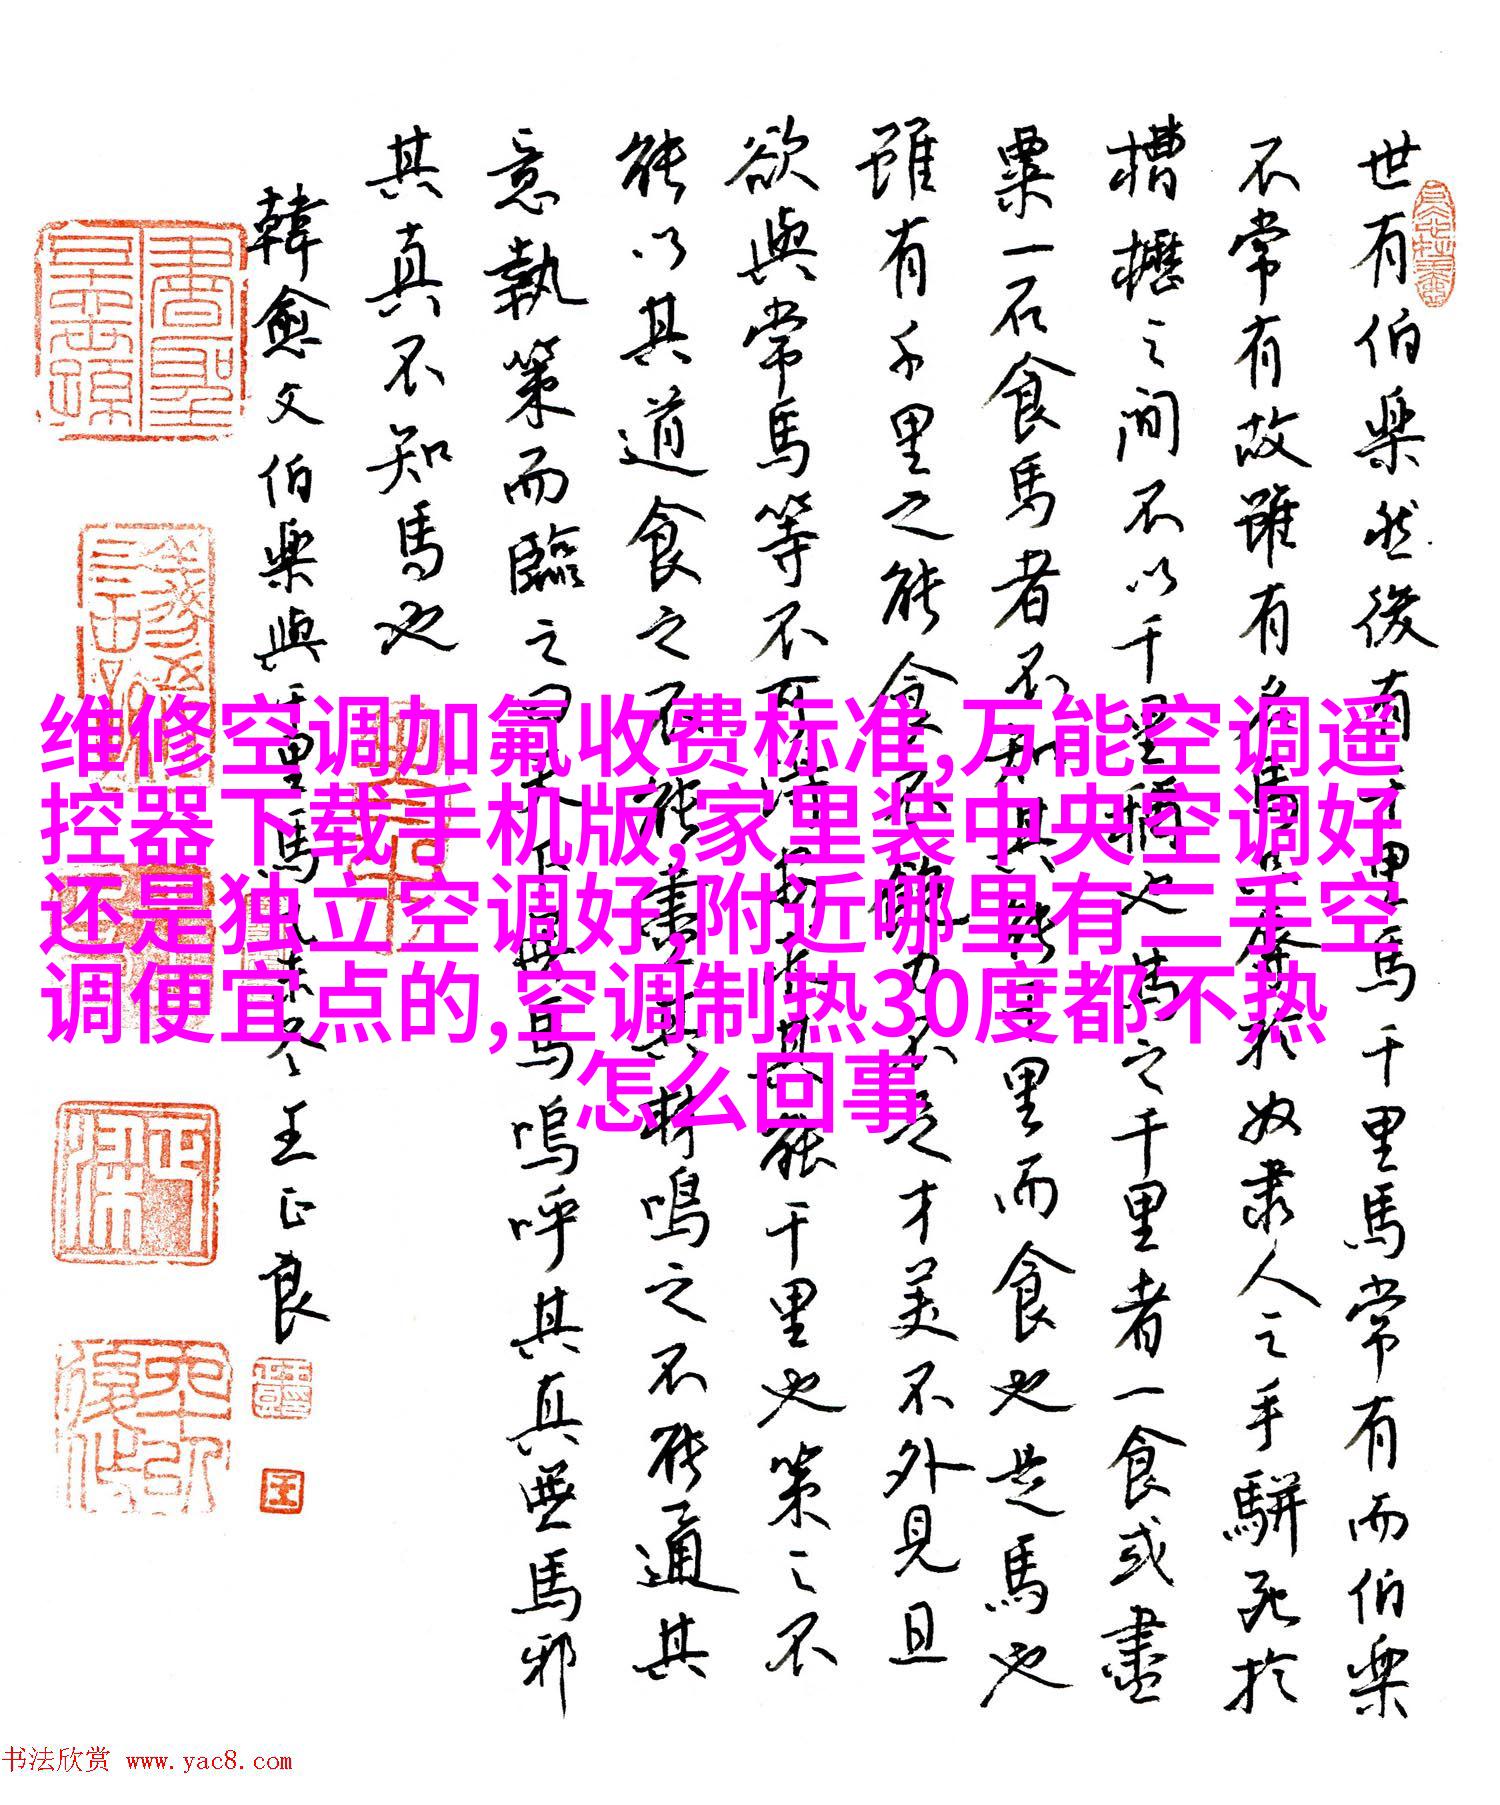 世有伯樂然後有千里馬千里馬常有而伯樂
不常有故雖有名馬辱於奴隸人之手駢死於
槽櫪之間不以千里稱也馬之千里者一食或盡
粟一石食馬者不知其能千里而食也是馬也
雖有千里之能食不飽力不足才美不外見且
欲與常馬等不可得安求其能千里也策之不
能以其道食之不能盡其材鳴之不能通其
意執策而臨之曰天下無馬嗚呼其真無馬邪
其真不知馬也
韓愈文伯樂與千里馬乙未冬王正良
维修空调加氟收费标准,万能空调遥
控器下载手机版,家里装中央空调好
还是独立空调好,附近哪里有二手空
调便宜点的,空调制热30度都不热
怎么回事
书法欣赏 www.yac8.com